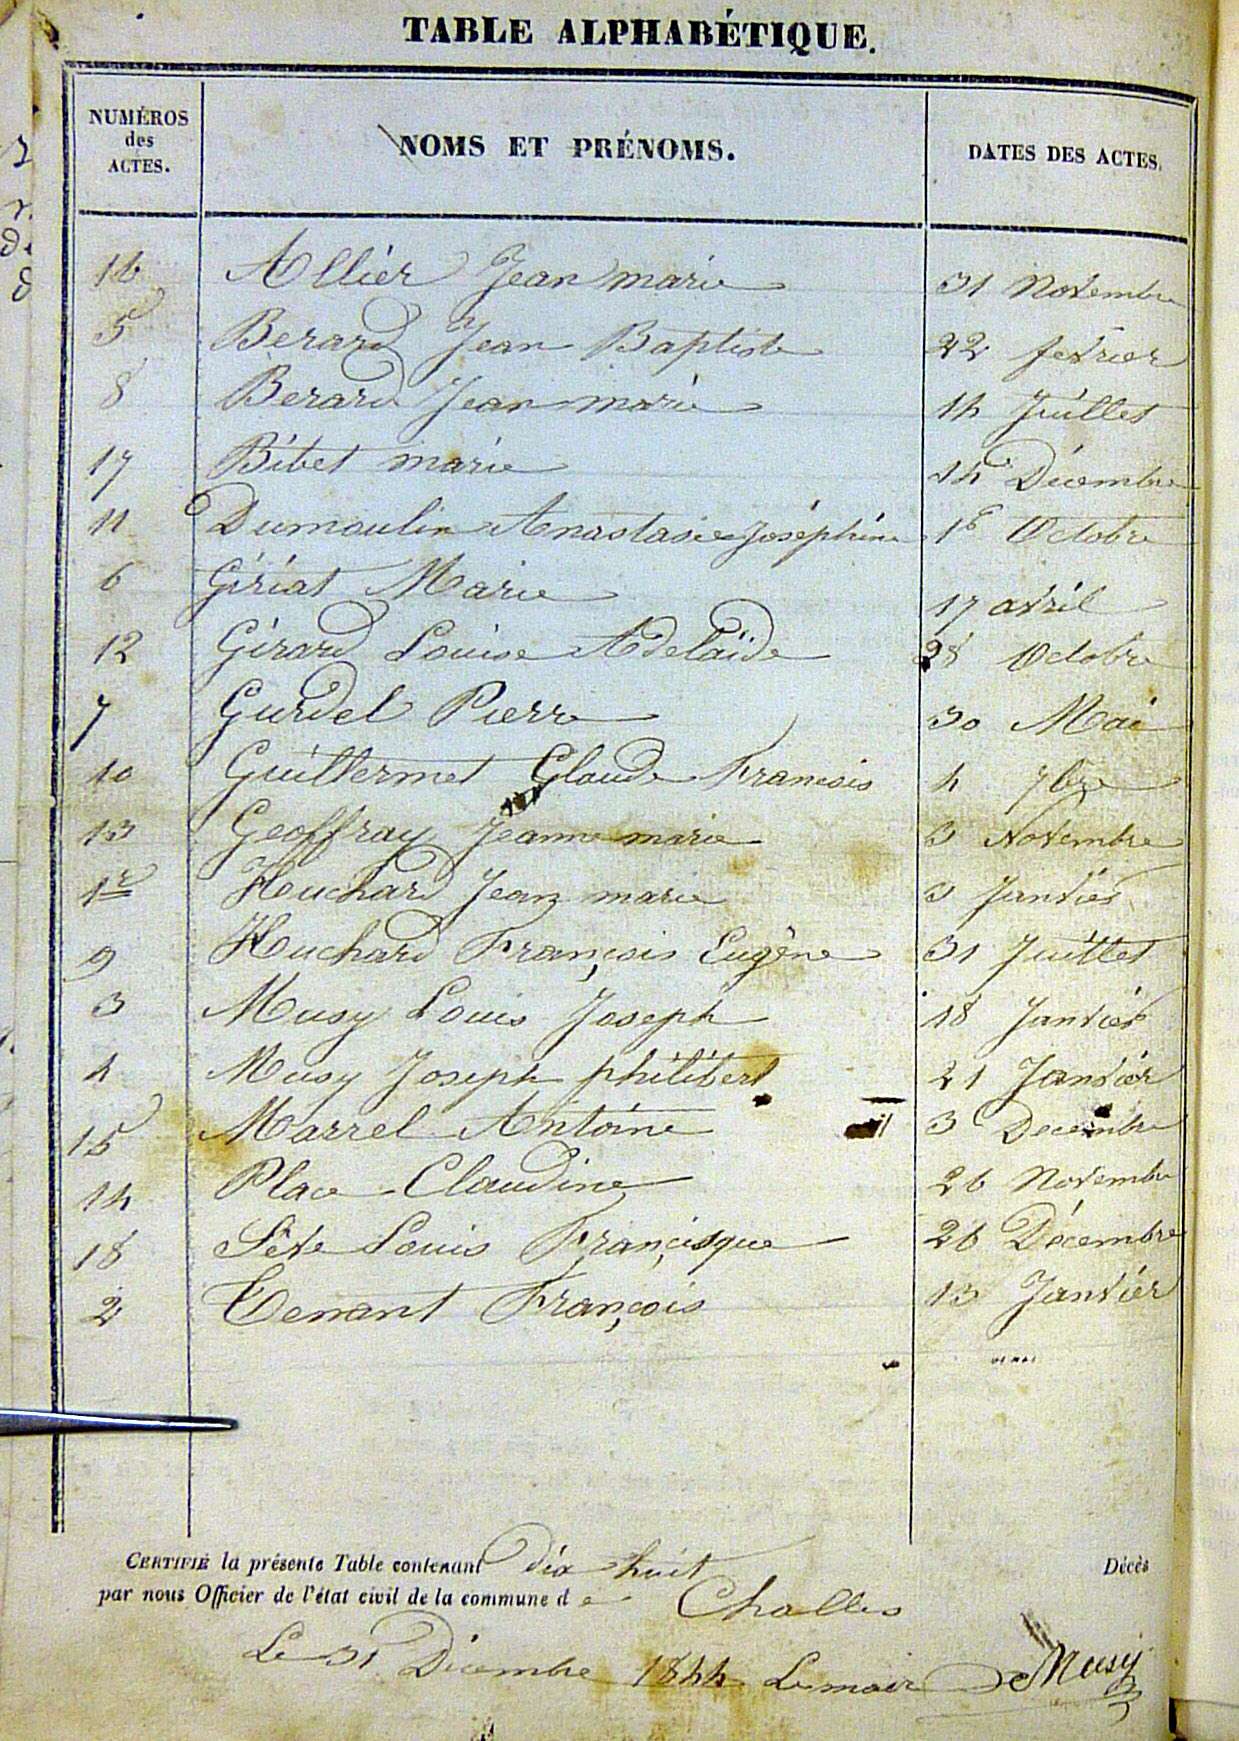 TABLE ALPHABÉTIQUE.
NUMÉROS des ACTES. NOMS ET PRÉNOMS. DATES DES ACTES.
16 Allier Jean marie 31 Novembre
5 Berard Jean Baptiste 22 fevrier
8 Berard Jean marie 14 Juillet
17 Bibet marie 14 Décembre
11 Dumoulin Anastasie Joséphine 1er Octobre
6 Gériat Marie 17 avril
12 Girard Louise Adelaïde 28 Octobre
7 Gurdel Pierre 30 Mai
10 Guillermet Glaude Francois 4 7bre
13 Geoffray Jeanne marie 3 Novembre
1er Huchard Jean marie 3 Janvier
9 Huchard François Eugène 31 Juillet
3 Musy Louis Joseph 18 Janvier
4 Musy Joseph philibert 21 Janvier
15 Marrel Antoine 3 Decembre
14 Place Claudine 26 Novembre
18 Sève Louis Françisque 26 Décembre
2 Tenant François 13 Janvier
CERTIFIÉ la présente Table contenant dix huit Décès
par nous Officier de l'état civil de la commune de Challes
Le 31 Décembre 1844 Lemaire Musy